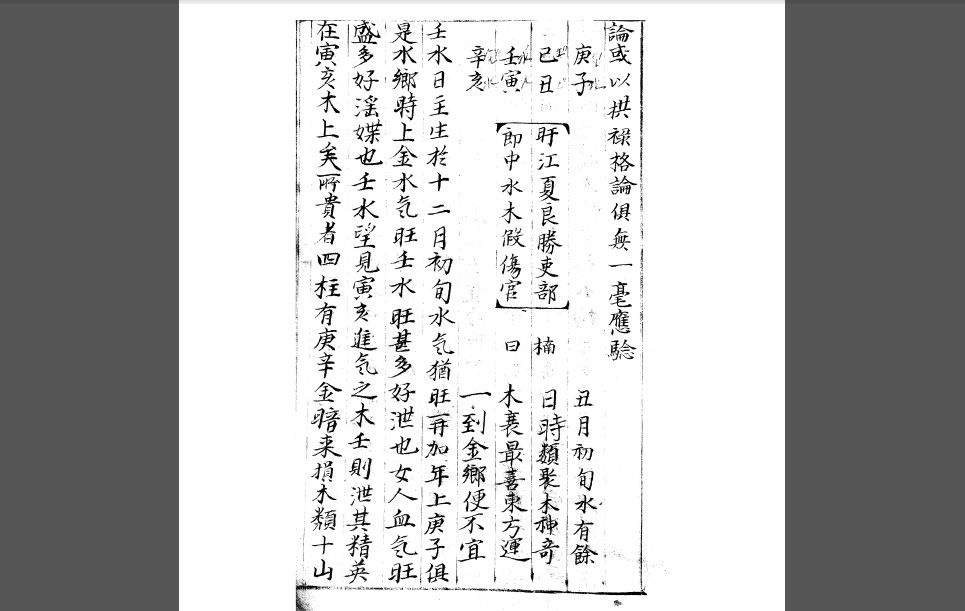 論或以拱祿格論俱無一毫應騐
庚子 丑月初旬水有餘
己丑 旴江夏良勝吏部 楠 日時類聚木神奇
壬寅 郎中水木假傷官 曰 木衰最喜東方運
辛亥 一到金鄉便不宜
壬水日主生於十二月初旬水気猶旺再加年上庚子俱
是水鄉時上金水気旺壬水旺甚多好泄也女人血気旺
盛多好滛媟也壬水望見寅亥進気之木壬則泄其精英
在寅亥木上矣所貴者四柱有庚辛金暗来損木類十山